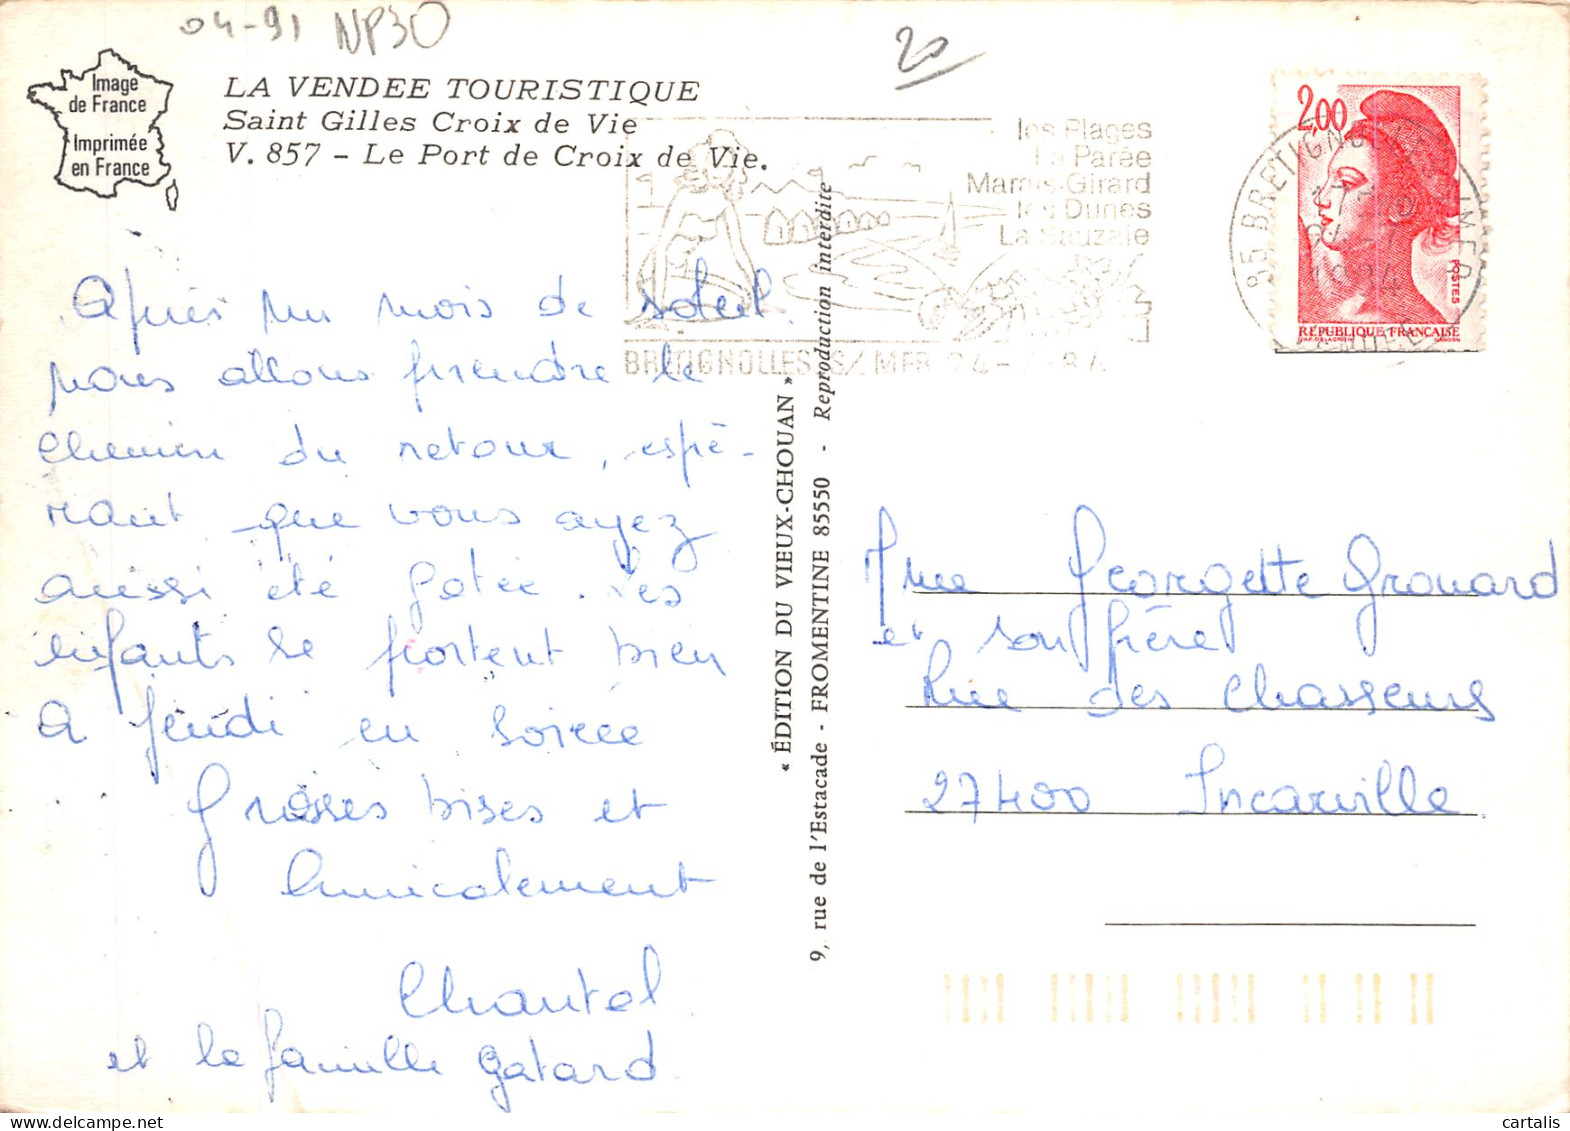 04-91 NP30
20
Image
de France
Imprimée
en France
LA VENDEE TOURISTIQUE
Saint Gilles Croix de Vie
V. 857 - Le Port de Croix de Vie.
les Plages
La Parée
Marais-Girard
les Dunes
La Sauzaie
BRETIGNOLLES S/ MER 24-7-84
2,00
POSTES
RÉPUBLIQUE FRANÇAISE
85 BRETIGNOLLES
Après un mois de soleil.
nous allons prendre le
chemin du retour, espé-
rant que vous ayez
aussi été gatée. Les
enfants se portent bien
A jeudi en soirée
Grosses bises et
Amicalement
Chantal
et la famille Gatard
« ÉDITION DU VIEUX-CHOUAN »
9, rue de l'Estacade - FROMENTINE 85550 - Reproduction interdite
Mme Georgette Grouard
et son frère
Rue des Chasseurs
27400 Incarville
cartalis